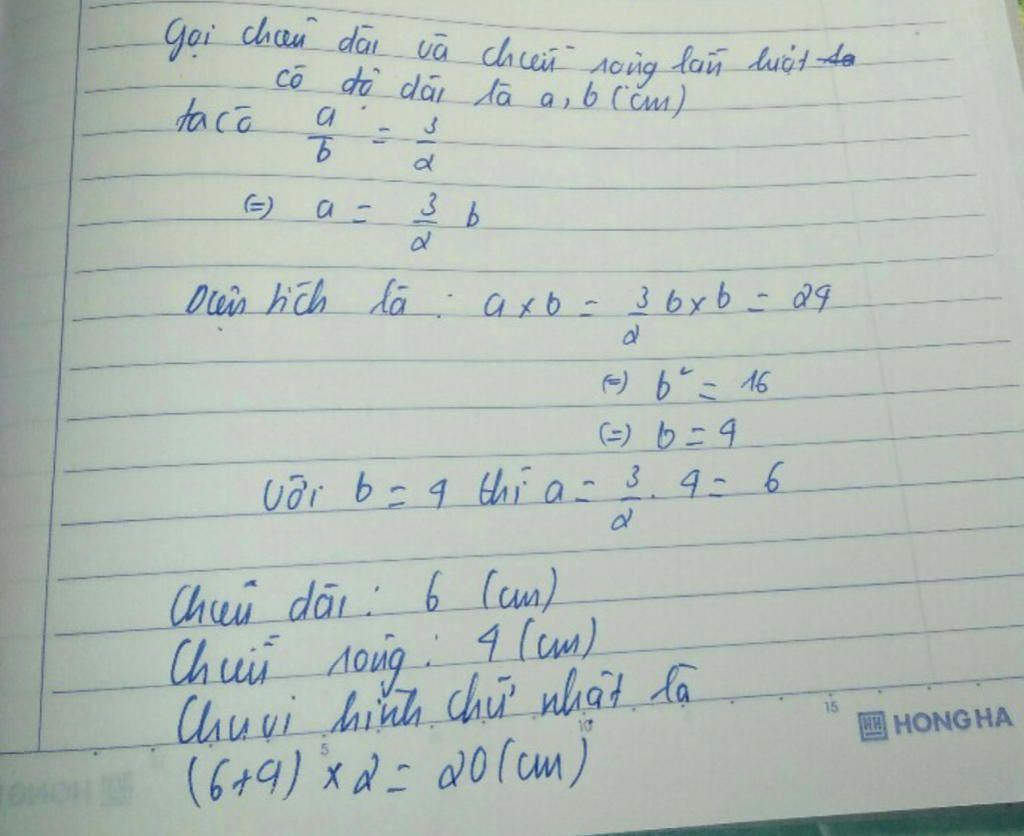 Gọi chiều dài và chiều rộng lần lượt
có độ dài là a, b (cm)
ta có a/b = 3/2
(=) a = 3/2 b
Diện tích là : a x b = 3/2 b x b = 24
(=) b² = 16
(=) b = 4
Với b = 4 thì a = 3/2 . 4 = 6
Chiều dài : 6 (cm)
Chiều rộng : 4 (cm)
Chu vi hình chữ nhật là
(6+4) x 2 = 20 (cm)
5 10 15
HH HONG HA